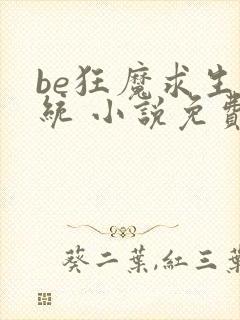 be狂魔求生
統 小說免費
葵二葉,紅三葉